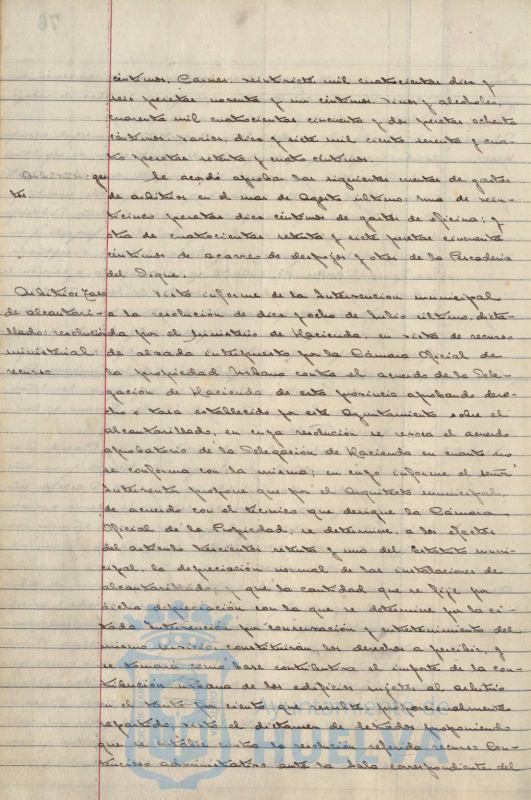 céntimos. Carnes. veintisiete mil cuatrocientas diez y
seis pesetas noventa y un céntimos. Vinos y alcoholes,
cuarenta mil cuatrocientas cincuenta y dos pesetas ochenta
céntimos. Varios. diez y siete mil ciento sesenta y cua-
tro pesetas setenta y cuatro céntimos.
Arbitrios: gas-
tos.
Se acordó aprobar las siguientes cuentas de gastos
de arbitrios en el mes de Agosto último: una de vein-
ticinco pesetas diez céntimos de gastos de oficina; y
otra de cuatrocientas setenta y siete pesetas cincuenta
céntimos de acarreo de despojos y otros de la Pescadería
del Dique.
Arbitrios: Tasa
de alcantari-
llado: resolución
ministerial:
recurso.
Visto informe de la Intervención municipal
a la resolución de diez y ocho de Julio último, dicta-
da por el Ministerio de Hacienda, en vista de recurso
de alzada interpuesto por la Cámara Oficial de
la propiedad Urbana contra el acuerdo de la Dele-
gación de Hacienda de esta provincia aprobando dere-
cho o tasa establecido por este Ayuntamiento sobre el
alcantarillado, en cuya resolución se revoca el acuerdo
aprobatorio de la Delegación de Hacienda en cuanto no
se conforma con la misma; en cuyo informe el señor
Interventor propone que por el Arquitecto municipal,
de acuerdo con el técnico que designe la Cámara
Oficial de la Propiedad, se determine, a los efectos
del artículo trescientos setenta y uno del Estatuto muni-
cipal, la depreciación normal de las instalaciones de
alcantarillado, y que la cantidad que se fije por
dicha depreciación con la que se determine por la ci-
tada Intervención por conservación y entretenimiento del
mismo servicio, constituirán los derechos a percibir, y
se tomará como base contributiva el importe de la con-
tribución urbana de los edificios sujetos al arbitrio
en el tanto por ciento que resulte proporcionalmente
repartido; visto el dictamen de letrados proponiendo
que se entable contra la resolución referida recurso Con-
tencioso administrativo ante la Sala correspondiente del
Ayuntamiento de
HUELVA